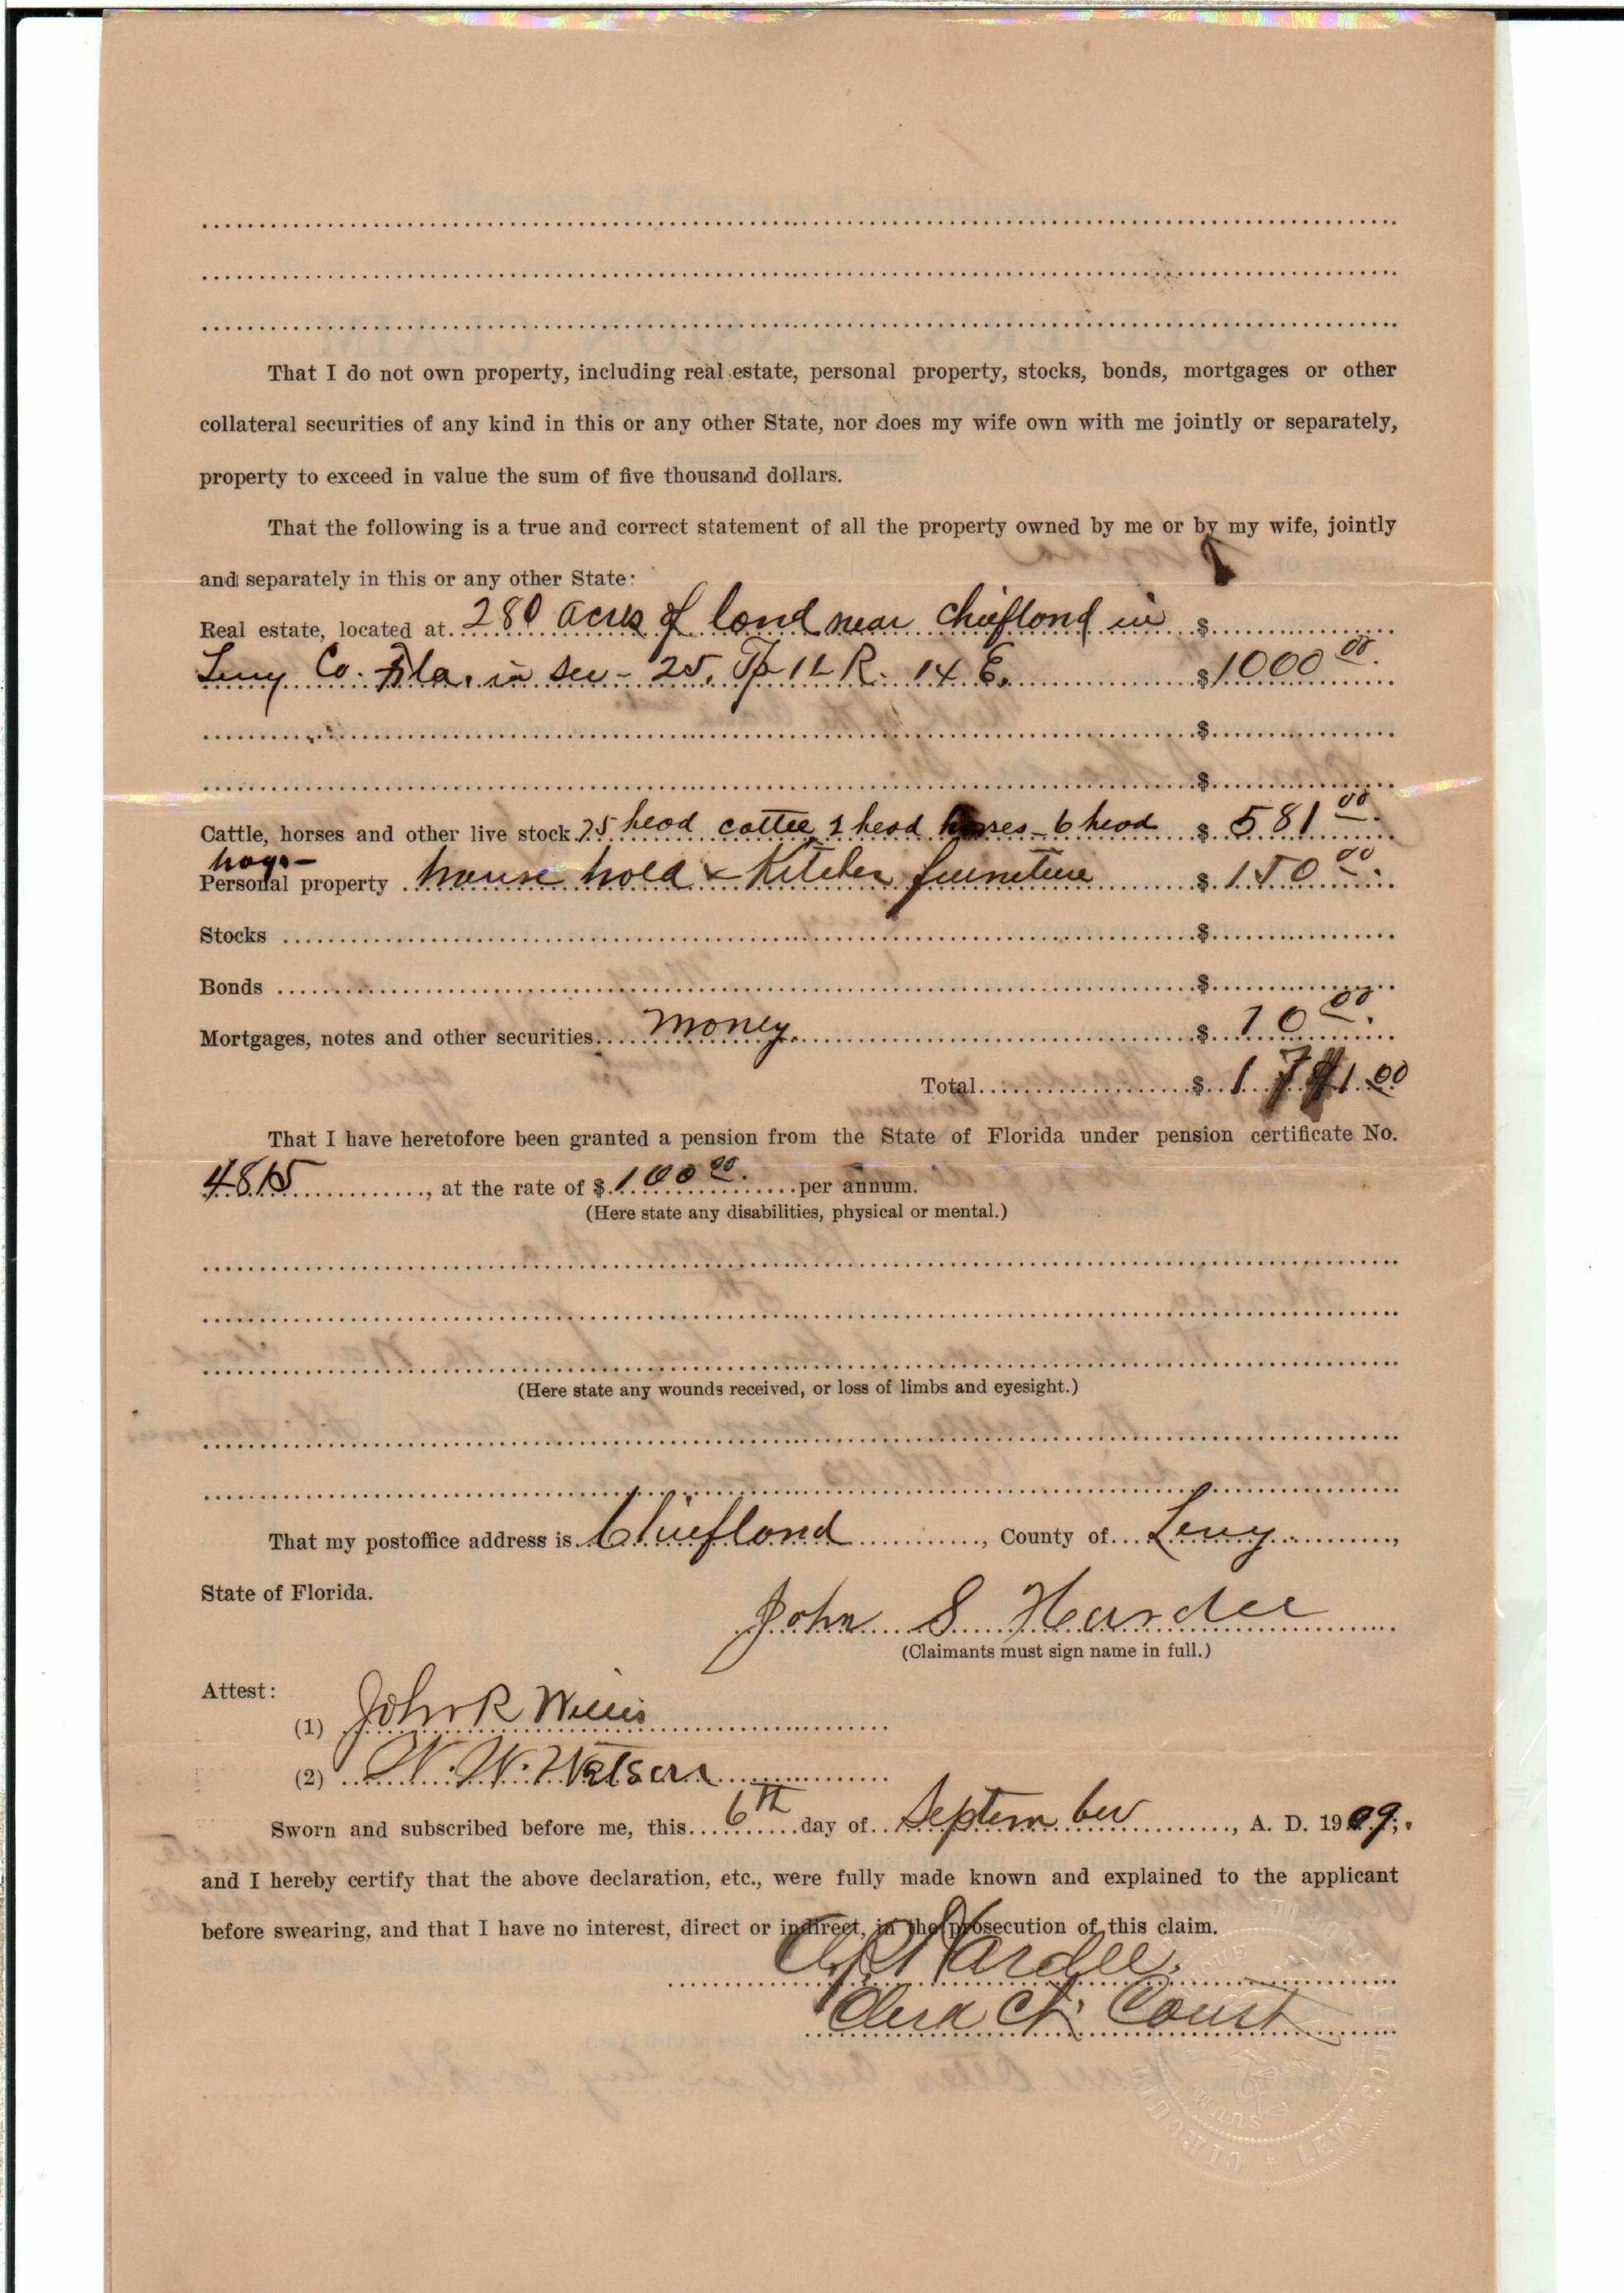 That I do not own property, including real estate, personal property, stocks, bonds, mortgages or other
collateral securities of any kind in this or any other State, nor does my wife own with me jointly or separately,
property to exceed in value the sum of five thousand dollars.
That the following is a true and correct statement of all the property owned by me or by my wife, jointly
and separately in this or any other State:
Real estate, located at 280 acres of land near Chiefland in $
Levy Co. Fla. in Sec - 25. Tp 11 R. 14 E. $1000 00
$
$
Cattle, horses and other live stock 75 head cattle 2 head horses - 6 head $ 581 00
hogs -
Personal property house hold & Kitchen furniture $ 150 00
Stocks $
Bonds $
Mortgages, notes and other securities money $ 10 00
Total $ 1741.00
That I have heretofore been granted a pension from the State of Florida under pension certificate No.
4815, at the rate of $ 100 00 per annum.
(Here state any disabilities, physical or mental.)
(Here state any wounds received, or loss of limbs and eyesight.)
That my postoffice address is Chiefland, County of Levy,
State of Florida.
John S Hardee
(Claimants must sign name in full.)
Attest:
(1) John R Willis
(2) W. W. Watson
Sworn and subscribed before me, this 6th day of September, A. D. 1909,
and I hereby certify that the above declaration, etc., were fully made known and explained to the applicant
before swearing, and that I have no interest, direct or indirect, in the prosecution of this claim.
Hardee
Clerk Ct. Court
CIRCUIT LEVY CO